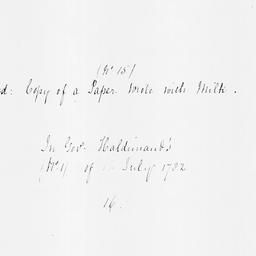 (No 15)
d: Copy of a Paper wrote with Milk.
In Govr Haldimand's
(No 1) of July 1782
16.